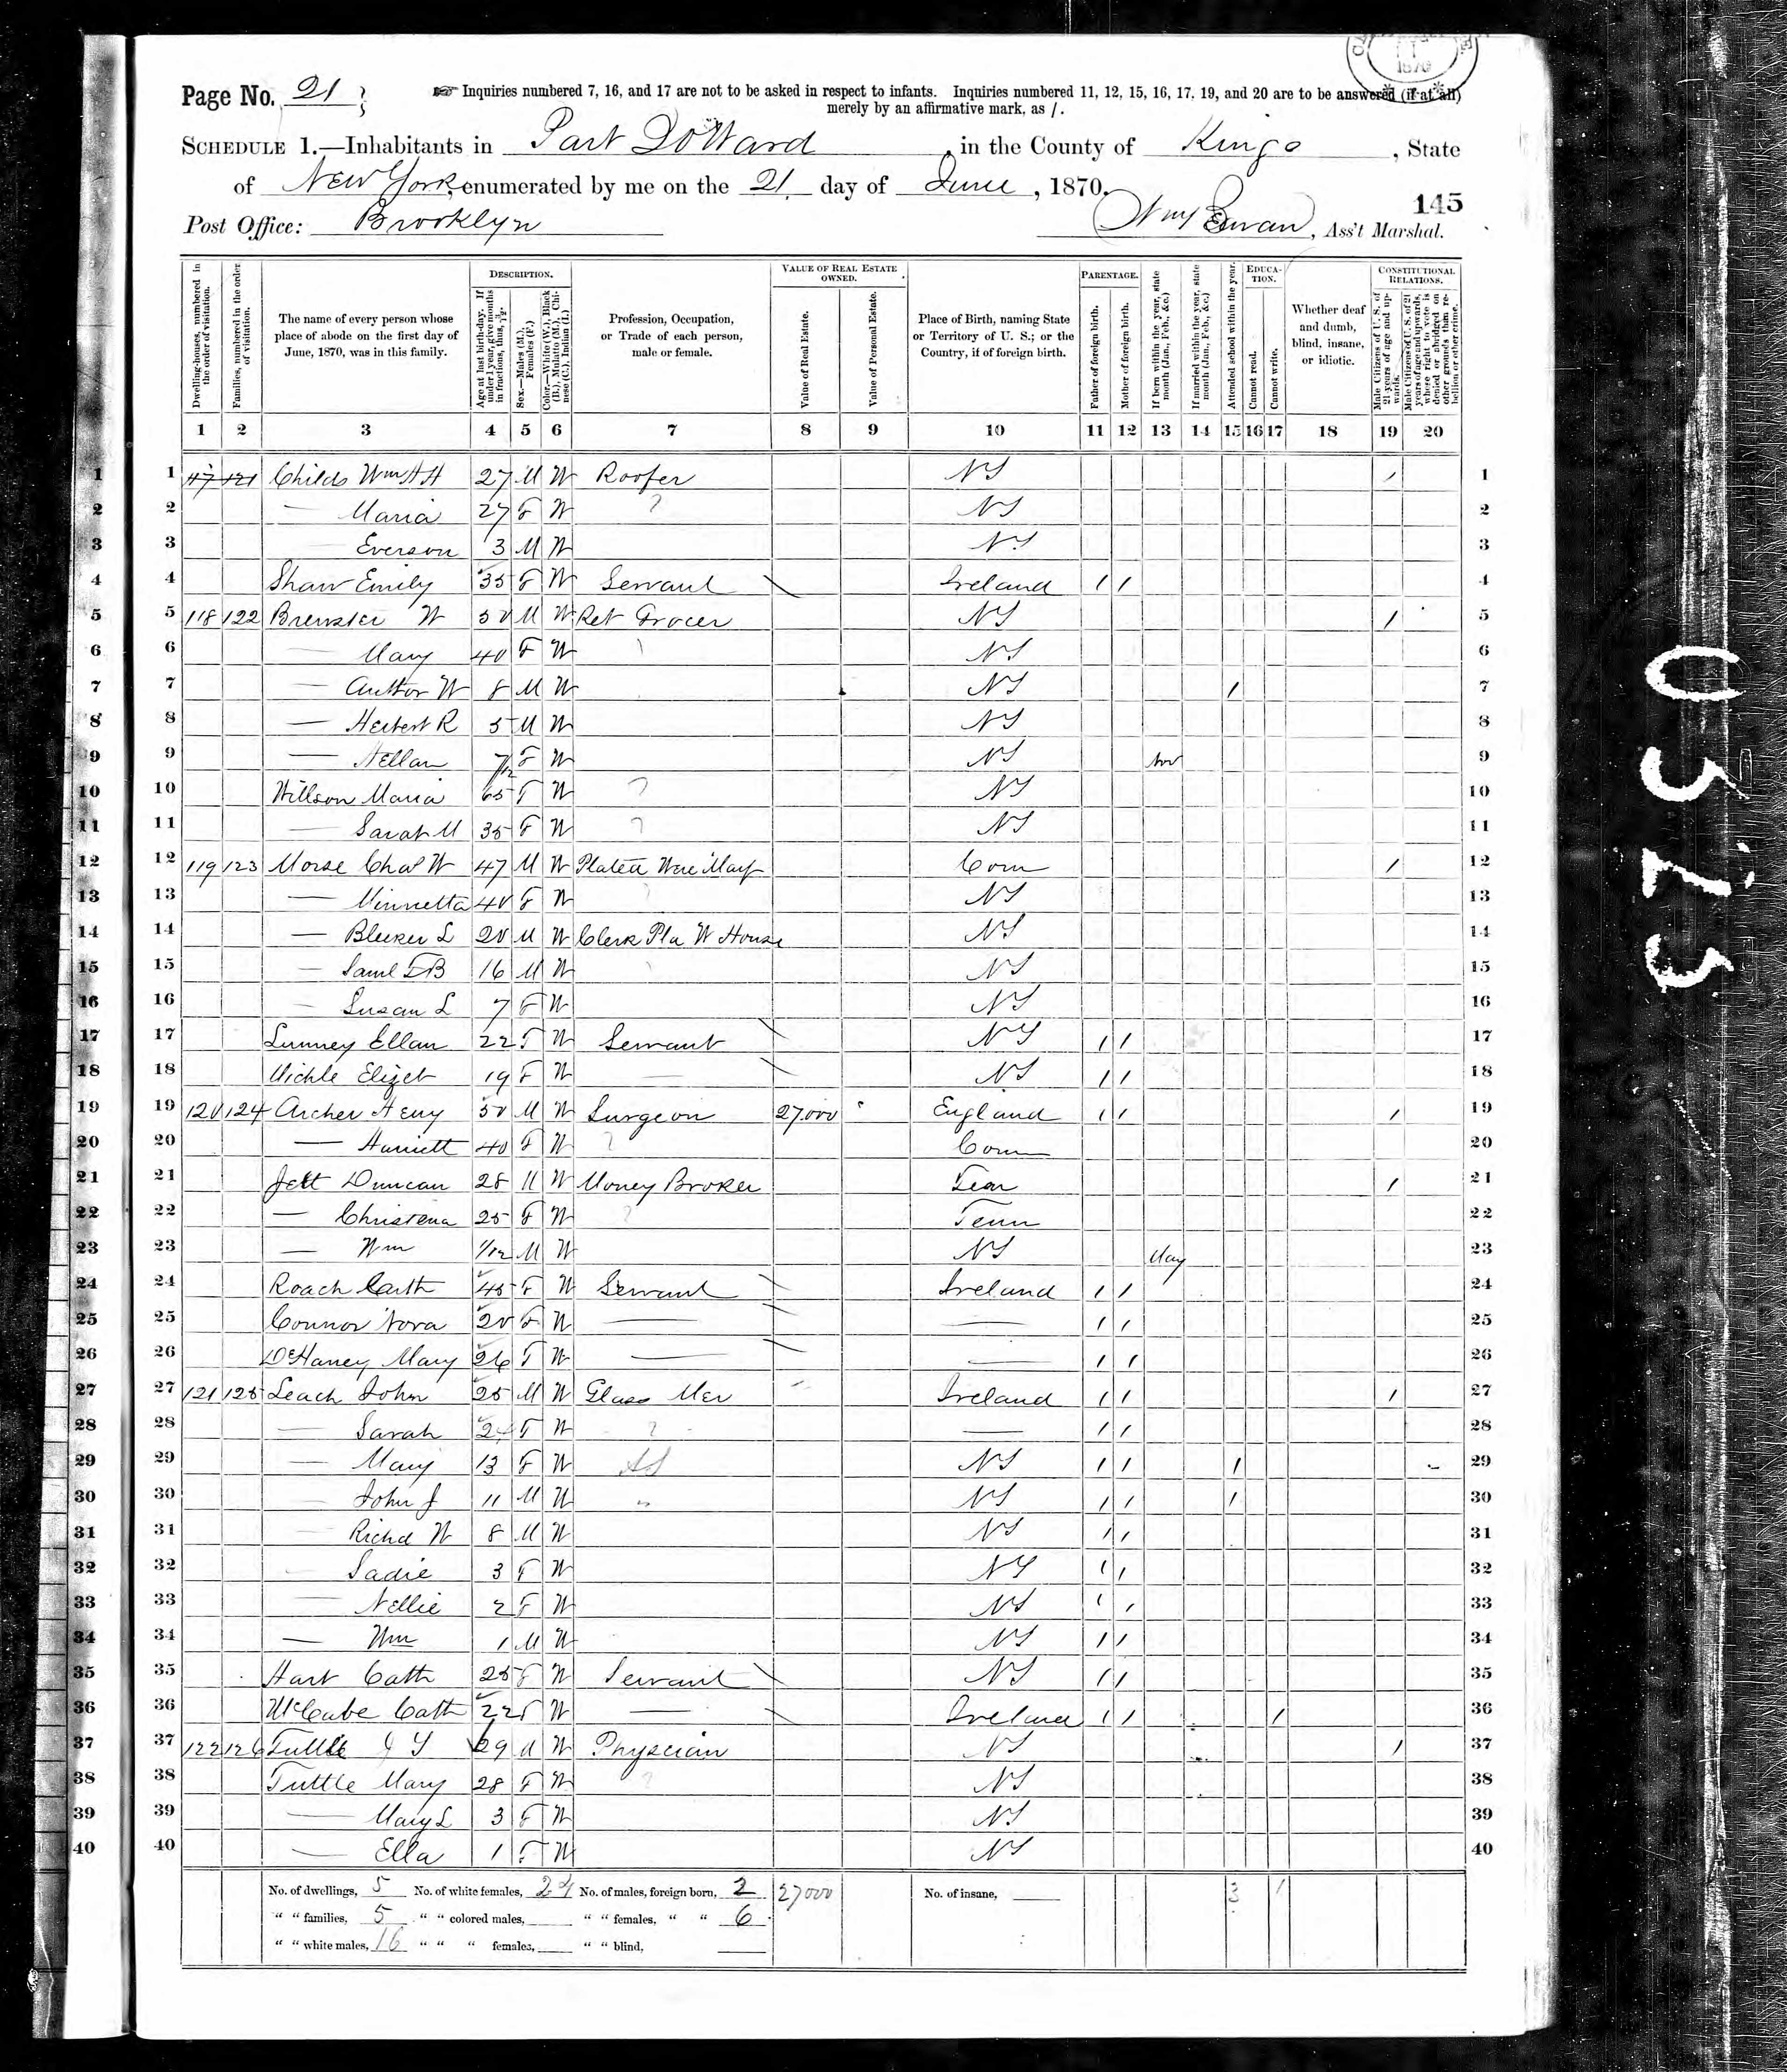 Page No. 21
☞ Inquiries numbered 7, 16, and 17 are not to be asked in respect to infants. Inquiries numbered 11, 12, 15, 16, 17, 19, and 20 are to be answered (if at all)
merely by an affirmative mark, as /.
1870
SCHEDULE 1.—Inhabitants in Part Ward, in the County of Kings, State
of New York, enumerated by me on the 21 day of June, 1870.
145
Post Office: Brooklyn
Wm, Ass't Marshal.
Dwelling-houses, numbered in the order of visitation.
Families, numbered in the order of visitation.
The name of every person whose place of abode on the first day of June, 1870, was in this family.
DESCRIPTION.
Age at last birth-day. If under 1 year, give months in fractions, thus, 3/12.
Sex.—Males (M.), Females (F.)
Color.—White (W.), Black (B.), Mulatto (M.), Chinese (C.), Indian (I.)
Profession, Occupation, or Trade of each person, male or female.
VALUE OF REAL ESTATE OWNED.
Value of Real Estate.
Value of Personal Estate.
Place of Birth, naming State or Territory of U. S.; or the Country, if of foreign birth.
PARENTAGE.
Father of foreign birth.
Mother of foreign birth.
If born within the year, state month (Jan., Feb., &c.)
If married within the year, state month (Jan., Feb., &c.)
Attended school within the year.
EDUCATION.
Cannot read.
Cannot write.
Whether deaf and dumb, blind, insane, or idiotic.
CONSTITUTIONAL RELATIONS.
Male Citizens of U. S. of 21 years of age and upwards.
Male Citizens of U. S. of 21 years of age and upwards, where right to vote is denied or abridged on other grounds than rebellion or other crime.
1 2 3 4 5 6 7 8 9 10 11 12 13 14 15 16 17 18 19 20
1 1 117 121 Childs Wm H 27 M W Roofer NY / 1
2 2 — Maria 27 F W ? NY 2
3 3 Everson 3 M W NY 3
4 4 Shaw Emily 35 F W Servant Ireland / / 4
5 5 118 122 Brewster W 50 M W Ret Grocer NY / 5
6 6 — Mary 40 F W NY 6
7 7 — Author W 8 M W NY / 7
8 8 — Herbert R 5 M W NY 8
9 9 — Nellan 7/12 F W NY Nov 9
10 10 Willson Maria 65 F W ? NY 10
11 11 — Sarah M 35 F W ? NY 11
12 12 119 123 Morse Chas W 47 M W Plated Ware Manf Conn / 12
13 13 — Minnetta 40 F W NY 13
14 14 — Bleeker L 20 M W Clerk Pla W House NY 14
15 15 — Saml B 16 M W NY 15
16 16 — Susan L 7 F W NY 16
17 17 Lunney Ellan 22 F W Servant NY / / 17
18 18 Michle Elizet 19 F W — NY / / 18
19 19 120 124 Archer Heny 50 M W Surgeon 27,000 England / / / 19
20 20 — Harriett 40 F W ? Conn 20
21 21 Jett Duncan 28 M W Money Broker / 21
22 22 — Christena 25 F W ? Tenn 22
23 23 — Wm 1/12 M W NY May 23
24 24 Roach Cath 45 F W Servant Ireland / / 24
25 25 Connor Nora 20 F W — — / / 25
26 26 Mary 26 F W — — / / 26
27 27 121 125 Leach John 25 M W Glass Mer Ireland / / / 27
28 28 — Sarah F W ? — / / 28
29 29 — Mary 13 F W NY / / / 29
30 30 — John J 11 M W NY / / / 30
31 31 Richd W 8 M W NY / / 31
32 32 — Sadie 3 F W NY / / 32
33 33 — Nellie 2 F W NY / / 33
34 34 — Wm 1 M W NY / / 34
35 35 Hart Cath 25 F W Servant NY / / 35
36 36 McCabe Cath 22 F W — Ireland / / / 36
37 37 122 126 Tuttle 29 M W Physcian NY / 37
38 38 Tuttle Mary 28 F W ? NY 38
39 39 — Mary L 3 F W NY 39
40 40 — Ella 1 F W NY 40
No. of dwellings, 5 No. of white females, 24 No. of males, foreign born, 2 27000 No. of insane, 3 1
" " families, 5 " " colored males, " " females, " " 6
" " white males, 16 " " " females, " " blind,
0373